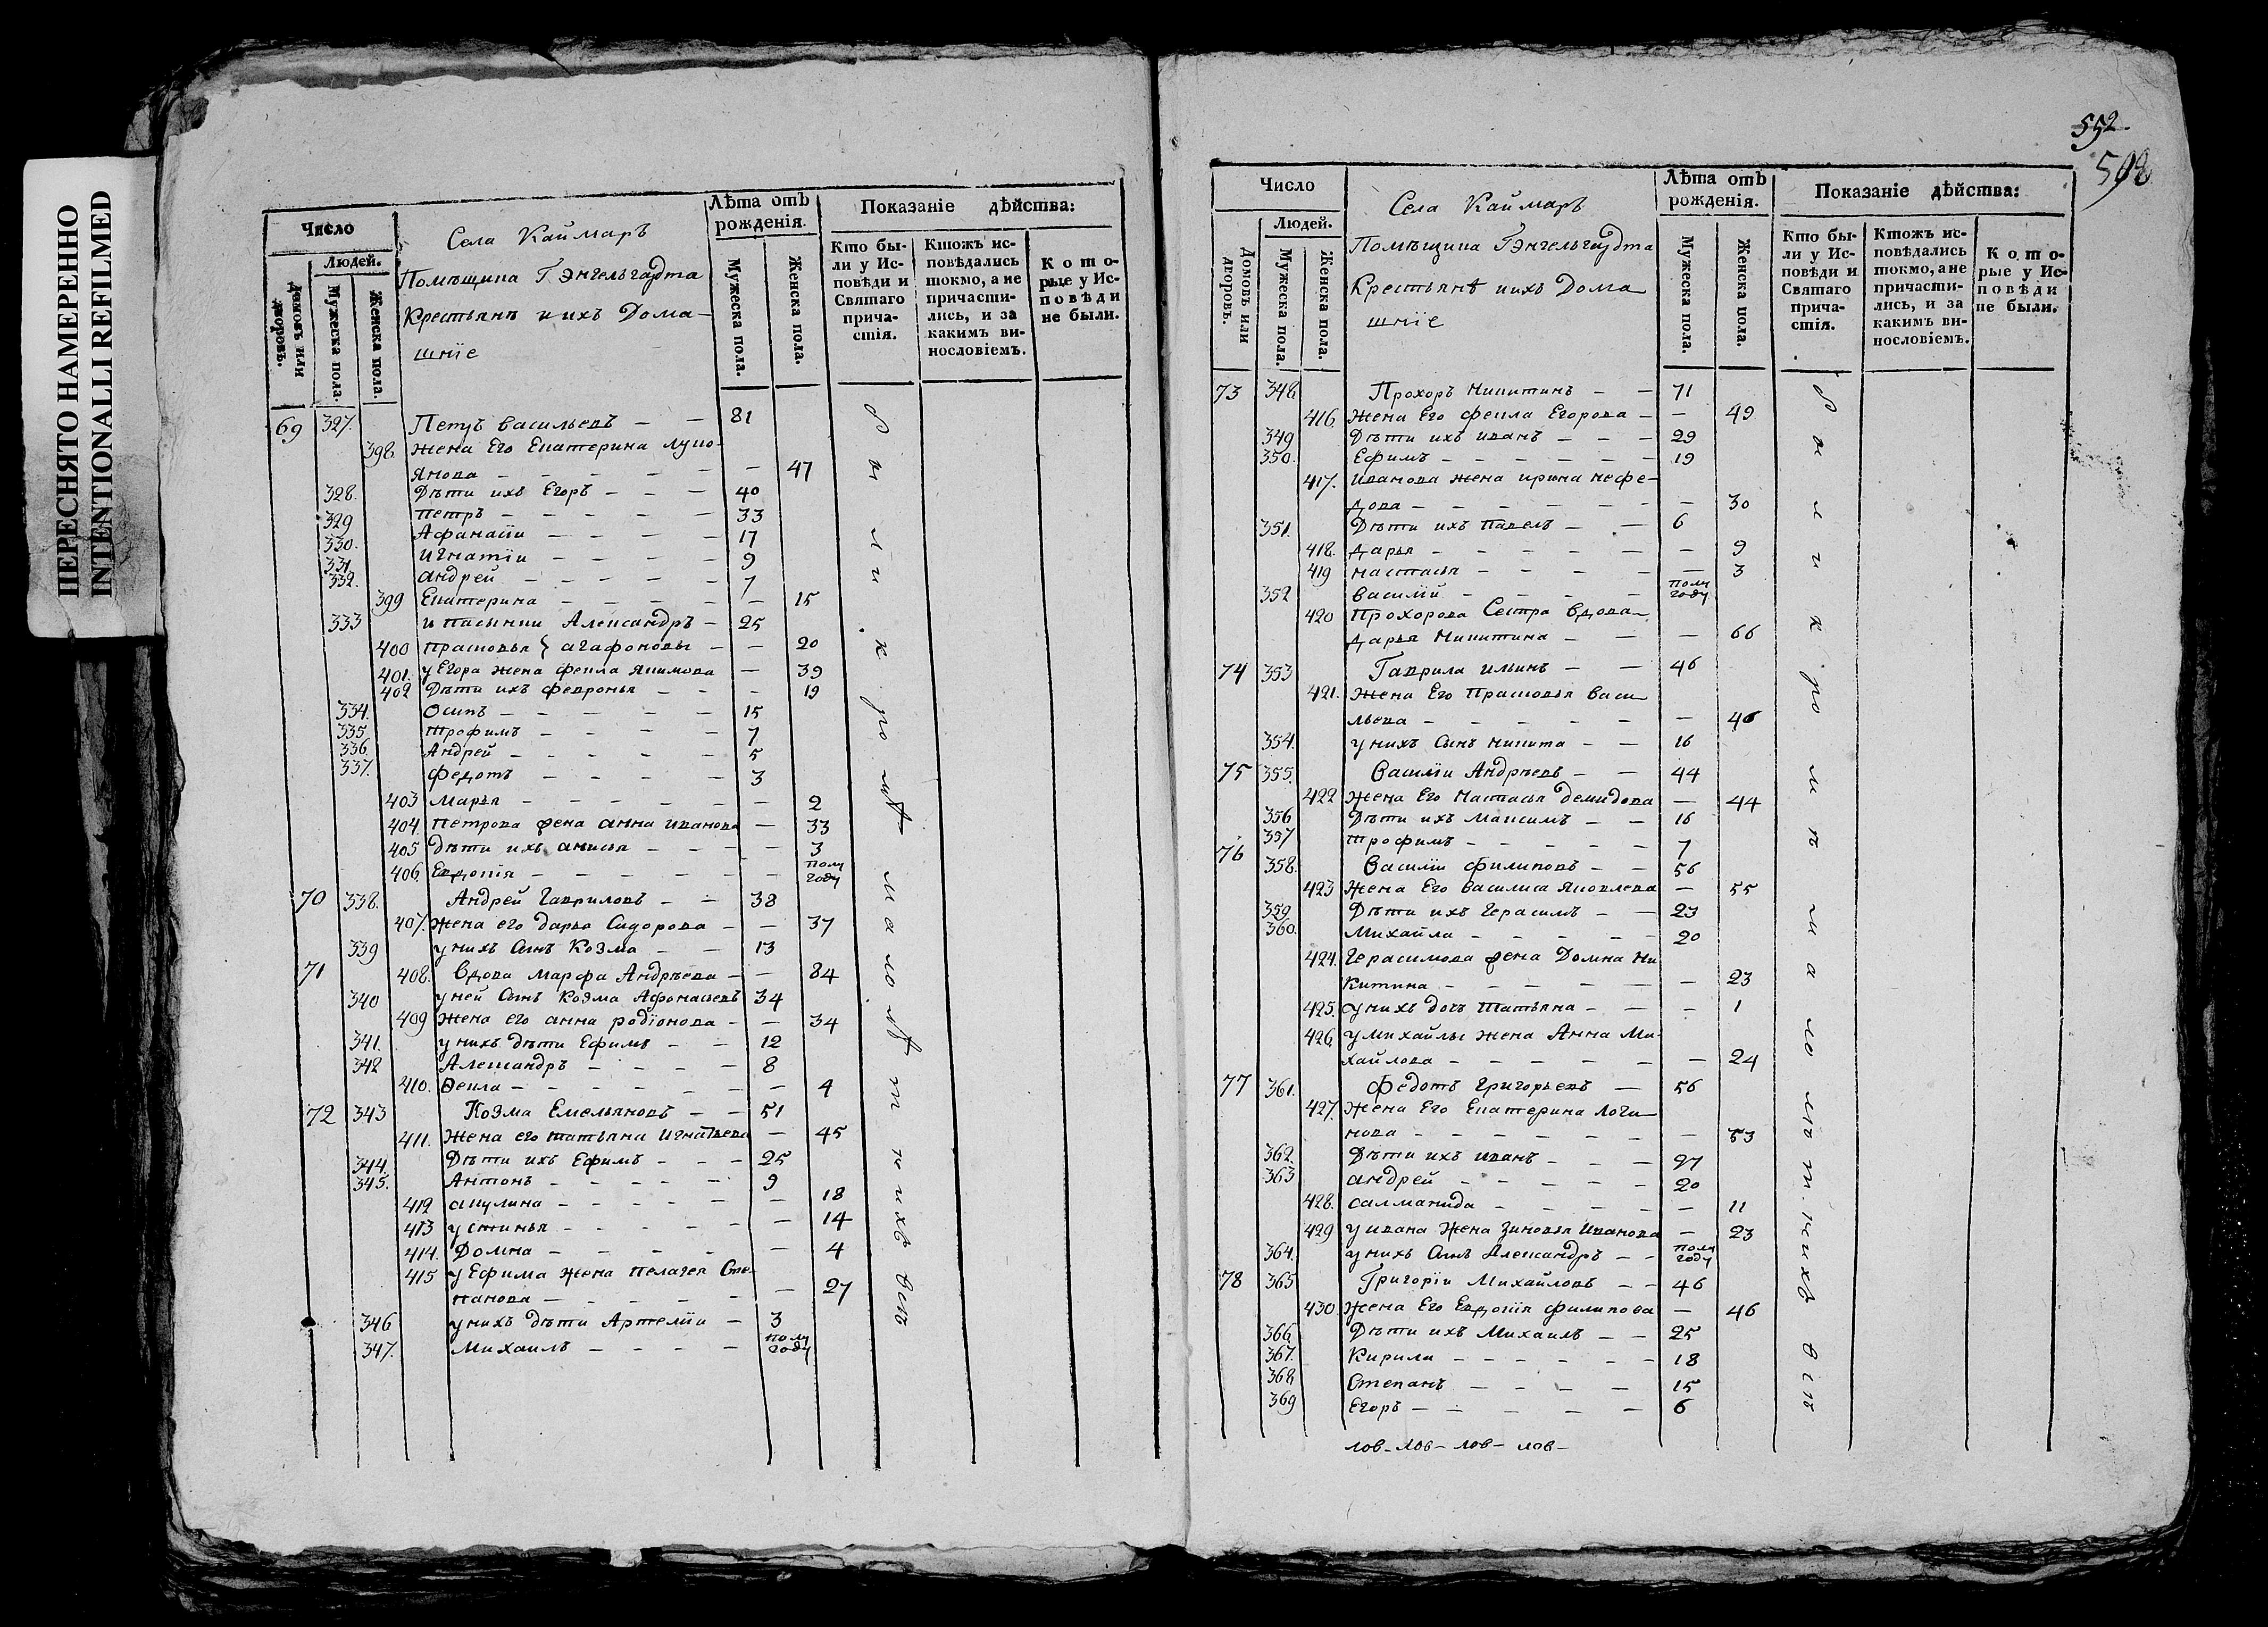 ПЕРЕСНЯТО НАМЕРЕННО
INTENTIONALLI REFILMED
Число
Людей.
Домовъ или дворовъ.
Мужеска пола.
Женска пола.
Села Каймаръ
Помѣщика Гэнгельгардта
Крестьянѣ и ихъ Дома-
шнїе
Лѣта отъ рожденія.
Мужеска пола.
Женска пола.
Показаніе дѣйства:
Кто бы-
ли у Ис-
повѣди и
Святаго
прича-
стія.
Ктожъ ис-
повѣдались
токмо, а не
причасти-
лись, и за
какимъ ви-
нословіемъ.
Кото-
рые у Ис-
повѣди
не были.
69 327. Петръ Васильевъ — — 81
398. Жена Его Екатерина Луко-
янова — — — — — 47
328. Дѣти ихъ Егоръ — — — 40
329 Петръ — — — — — 33
330. Афанасїи — — — — 17
331 Игнатїи — — — — 9
332. Андрей — — — — — 7
399 Екатерина — — — — — 15
333 и пасынки Александръ — 25
400 Прасковья } Агафоновы — — 20
401. у Егора жена Фекла Якимова — 39
402 Дѣти ихъ Февронья — — — 19
334. Осипъ — — — — — 15
335. Трофимъ — — — — 7
336. Андрей — — — — — 5
337. Федотъ — — — — 3
403 Марья — — — — — — 2
404. Петрова жена Анна Иванова — 33
405 Дѣти ихъ Анисья — — — — 3
406. Евдокія — — — — — — полу году
70 338. Андрей Гавриловъ — — 38
407. Жена его Дарья Сидорова — — 37
339 у нихъ сынъ Козма — — 13
71 408. Вдова Марфа Андрѣева — — 84
340 у ней Сынъ Козма Афонасьевъ 34
409 Жена его Анна Родїонова — — 34
341. у нихъ дѣти Ефимъ — — 12
342 Александръ — — — — 8
410. Фекла — — — — — — 4
72 343 Козма Емельяновъ — — 51
411. Жена его Татьяна Игнатьева — 45
344. Дѣти ихъ Ефимъ — — — 25
345. Антонъ — — — — — 9
412 Акулина — — — — — — 18
413 Устинья — — — — — — 14
414. Домна — — — — — 4
415 у Ефима жена Пелагея Сте-
панова — — — — — — 27
346 у нихъ дѣти Артемїи — 3
347. Михаилъ — — — — полу году
552
598
Число
Людей.
Домовъ или дворовъ.
Мужеска пола.
Женска пола.
Села Каймаръ
Помѣщика Гэнгельгардта
Крестьянѣ и ихъ Дома
шнїе
Лѣта отъ рожденія.
Мужеска пола.
Женска пола.
Показаніе дѣйства:
Кто бы-
ли у Ис-
повѣди и
Святаго
прича-
стія.
Ктожъ ис-
повѣдались
токмо, а не
причасти-
лись, и за
какимъ ви-
нословіемъ.
Кото-
рые у Ис-
повѣди
не были.
73 348 Прохоръ Никитинъ — — 71
416. Жена Его Фекла Егорова — — 49
349 Дѣти ихъ Иванъ — — — 29
350. Ефимъ — — — — — — 19
417. Иванова жена Ирина Нефе-
дова — — — — — — — 30
351. Дѣти ихъ Павелъ — — 6
418. Дарья — — — — — — 9
419 Настасья — — — — — — 3
352 Василїй — — — — — полу году
420 Прохорова Сестра Вдова
Дарья Никитина — — — 66
74 353 Гаврила Ильинъ — — 46
421. Жена Его Прасковья Васи
льева — — — — — — — 46
354. у нихъ Сынъ Никита — — 16
75 355. Василїи Андрѣевъ — — 44
422 Жена Его Настасья Демидова — 44
356 Дѣти ихъ Максимъ — — 16
357 Трофимъ — — — — — 7
76 358. Василїи Филиповъ — — 56
423 Жена Его Василиса Яковлева — 55
359 Дѣти ихъ Герасимъ — — 23
360. Михайла — — — — — 20
424. Герасимова жена Домна Ни
китина — — — — — — — 23
425. у нихъ дочь Татьяна — — — 1
426. у Михайлы жена Анна Ми-
хайлова — — — — — — 24
77 361. Федотъ Григорьевъ — 56
427. Жена Его Екатерина Логи
нова — — — — — — — 53
362. Дѣти ихъ Иванъ — — — 27
363 Андрей — — — — — 20
428. Салманида — — — — — — 11
429 у Ивана Жена Зиновья Иванова — 23
364. у нихъ сынъ Александръ — — полу году
78 365 Григорїи Михайловъ — — 46
430 Жена Его Евдокїя Филипова — 46
366. Дѣти ихъ Михаилъ — — 25
367. Кирила — — — — — — 18
368 Степанъ — — — — 15
369 Егоръ — — — — — 6